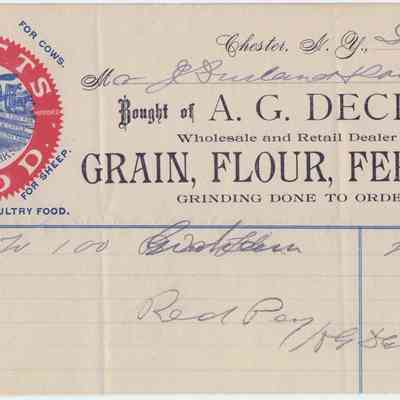 FOR COWS.
TS
OD.
FOR SHEEP.
ULTRY FOOD.
Chester, N. Y.,
M
Bought of A. G. DECK
Wholesale and Retail Dealer
GRAIN, FLOUR, FEE
GRINDING DONE TO ORDE
100
Red Pay
A G De